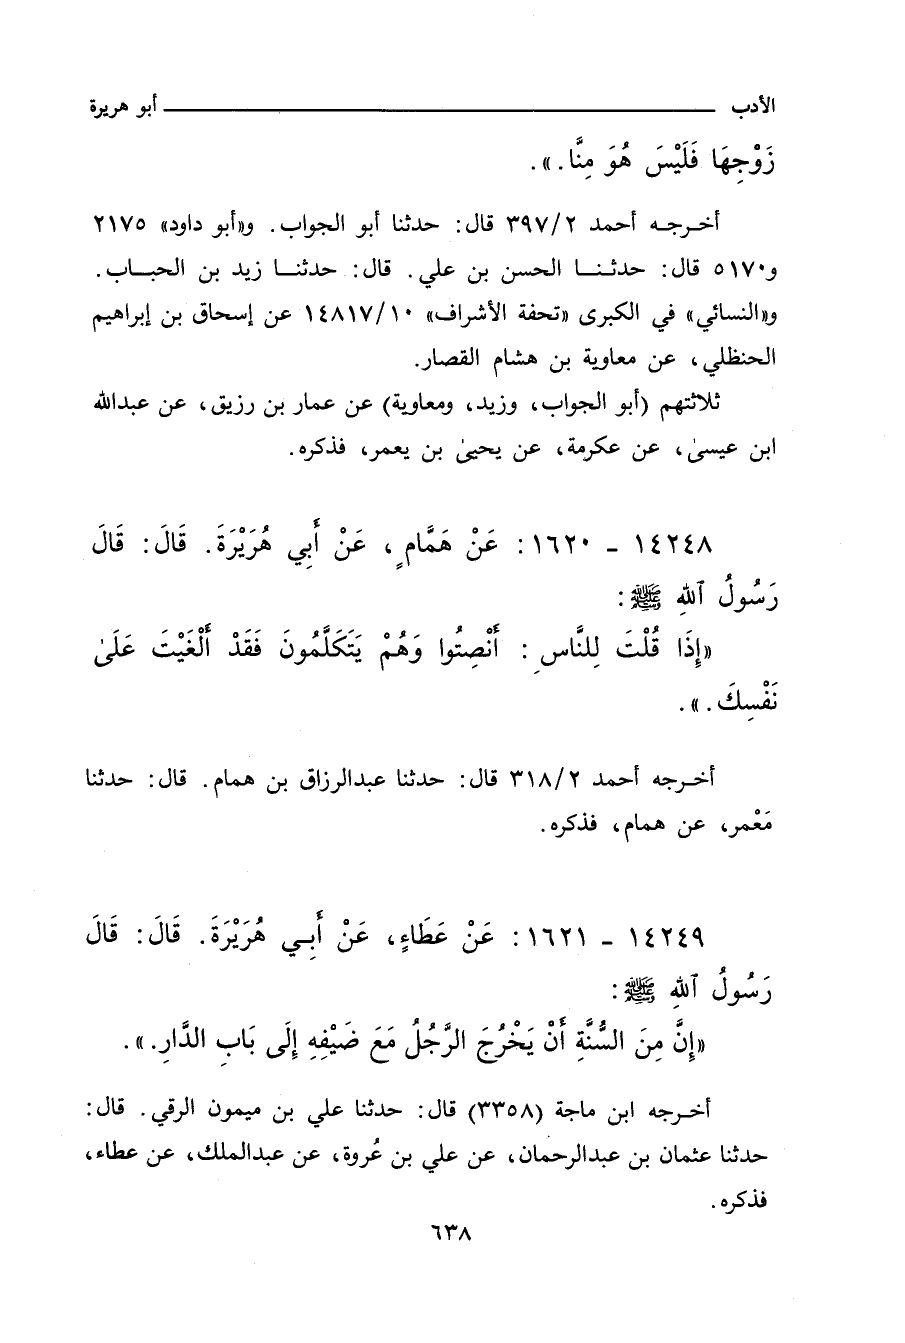 الأدب ــــــــــــ أبو هريرة
زَوْجِهَا فَلَيْسَ هُوَ مِنَّا.».
أخرجه أحمد ٣٩٧/٢ قال: حدثنا أبو الجواب. و«أبو داود» ٢١٧٥
و٥١٧٠ قال: حدثنا الحسن بن علي. قال: حدثنا زيد بن الحباب.
و«النسائي» في الكبرى «تحفة الأشراف» ١٤٨١٧/١٠ عن إسحاق بن إبراهيم
الحنظلي، عن معاوية بن هشام القصار.
ثلاثتهم (أبو الجواب، وزيد، ومعاوية) عن عمار بن رزيق، عن عبدالله
ابن عيسىٰ، عن عكرمة، عن يحيىٰ بن يعمر، فذكره.
١٤٢٤٨ - ١٦٢٠: عَنْ هَمَّامٍ، عَنْ أَبِي هُرَيْرَةَ. قَالَ: قَالَ
رَسُولُ ٱللهِ ﷺ:
«إِذَا قُلْتَ لِلنَّاسِ: أَنْصِتُوا وَهُمْ يَتَكَلَّمُونَ فَقَدْ أَلْغَيْتَ عَلَىٰ
نَفْسِكَ.».
أخرجه أحمد ٣١٨/٢ قال: حدثنا عبدالرزاق بن همام. قال: حدثنا
مَعْمر، عن همام، فذكره.
١٤٢٤٩ - ١٦٢١: عَنْ عَطَاءٍ، عَنْ أَبِي هُرَيْرَةَ. قَالَ: قَالَ
رَسُولُ ٱللهِ ﷺ:
«إِنَّ مِنَ السُّنَّةِ أَنْ يَخْرُجَ الرَّجُلُ مَعَ ضَيْفِهِ إِلَى بَابِ الدَّارِ.».
أخرجه ابن ماجة (٣٣٥٨) قال: حدثنا علي بن ميمون الرقي. قال:
حدثنا عثمان بن عبدالرحمان، عن علي بن عُروة، عن عبدالملك، عن عطاء،
فذكره.
٦٣٨